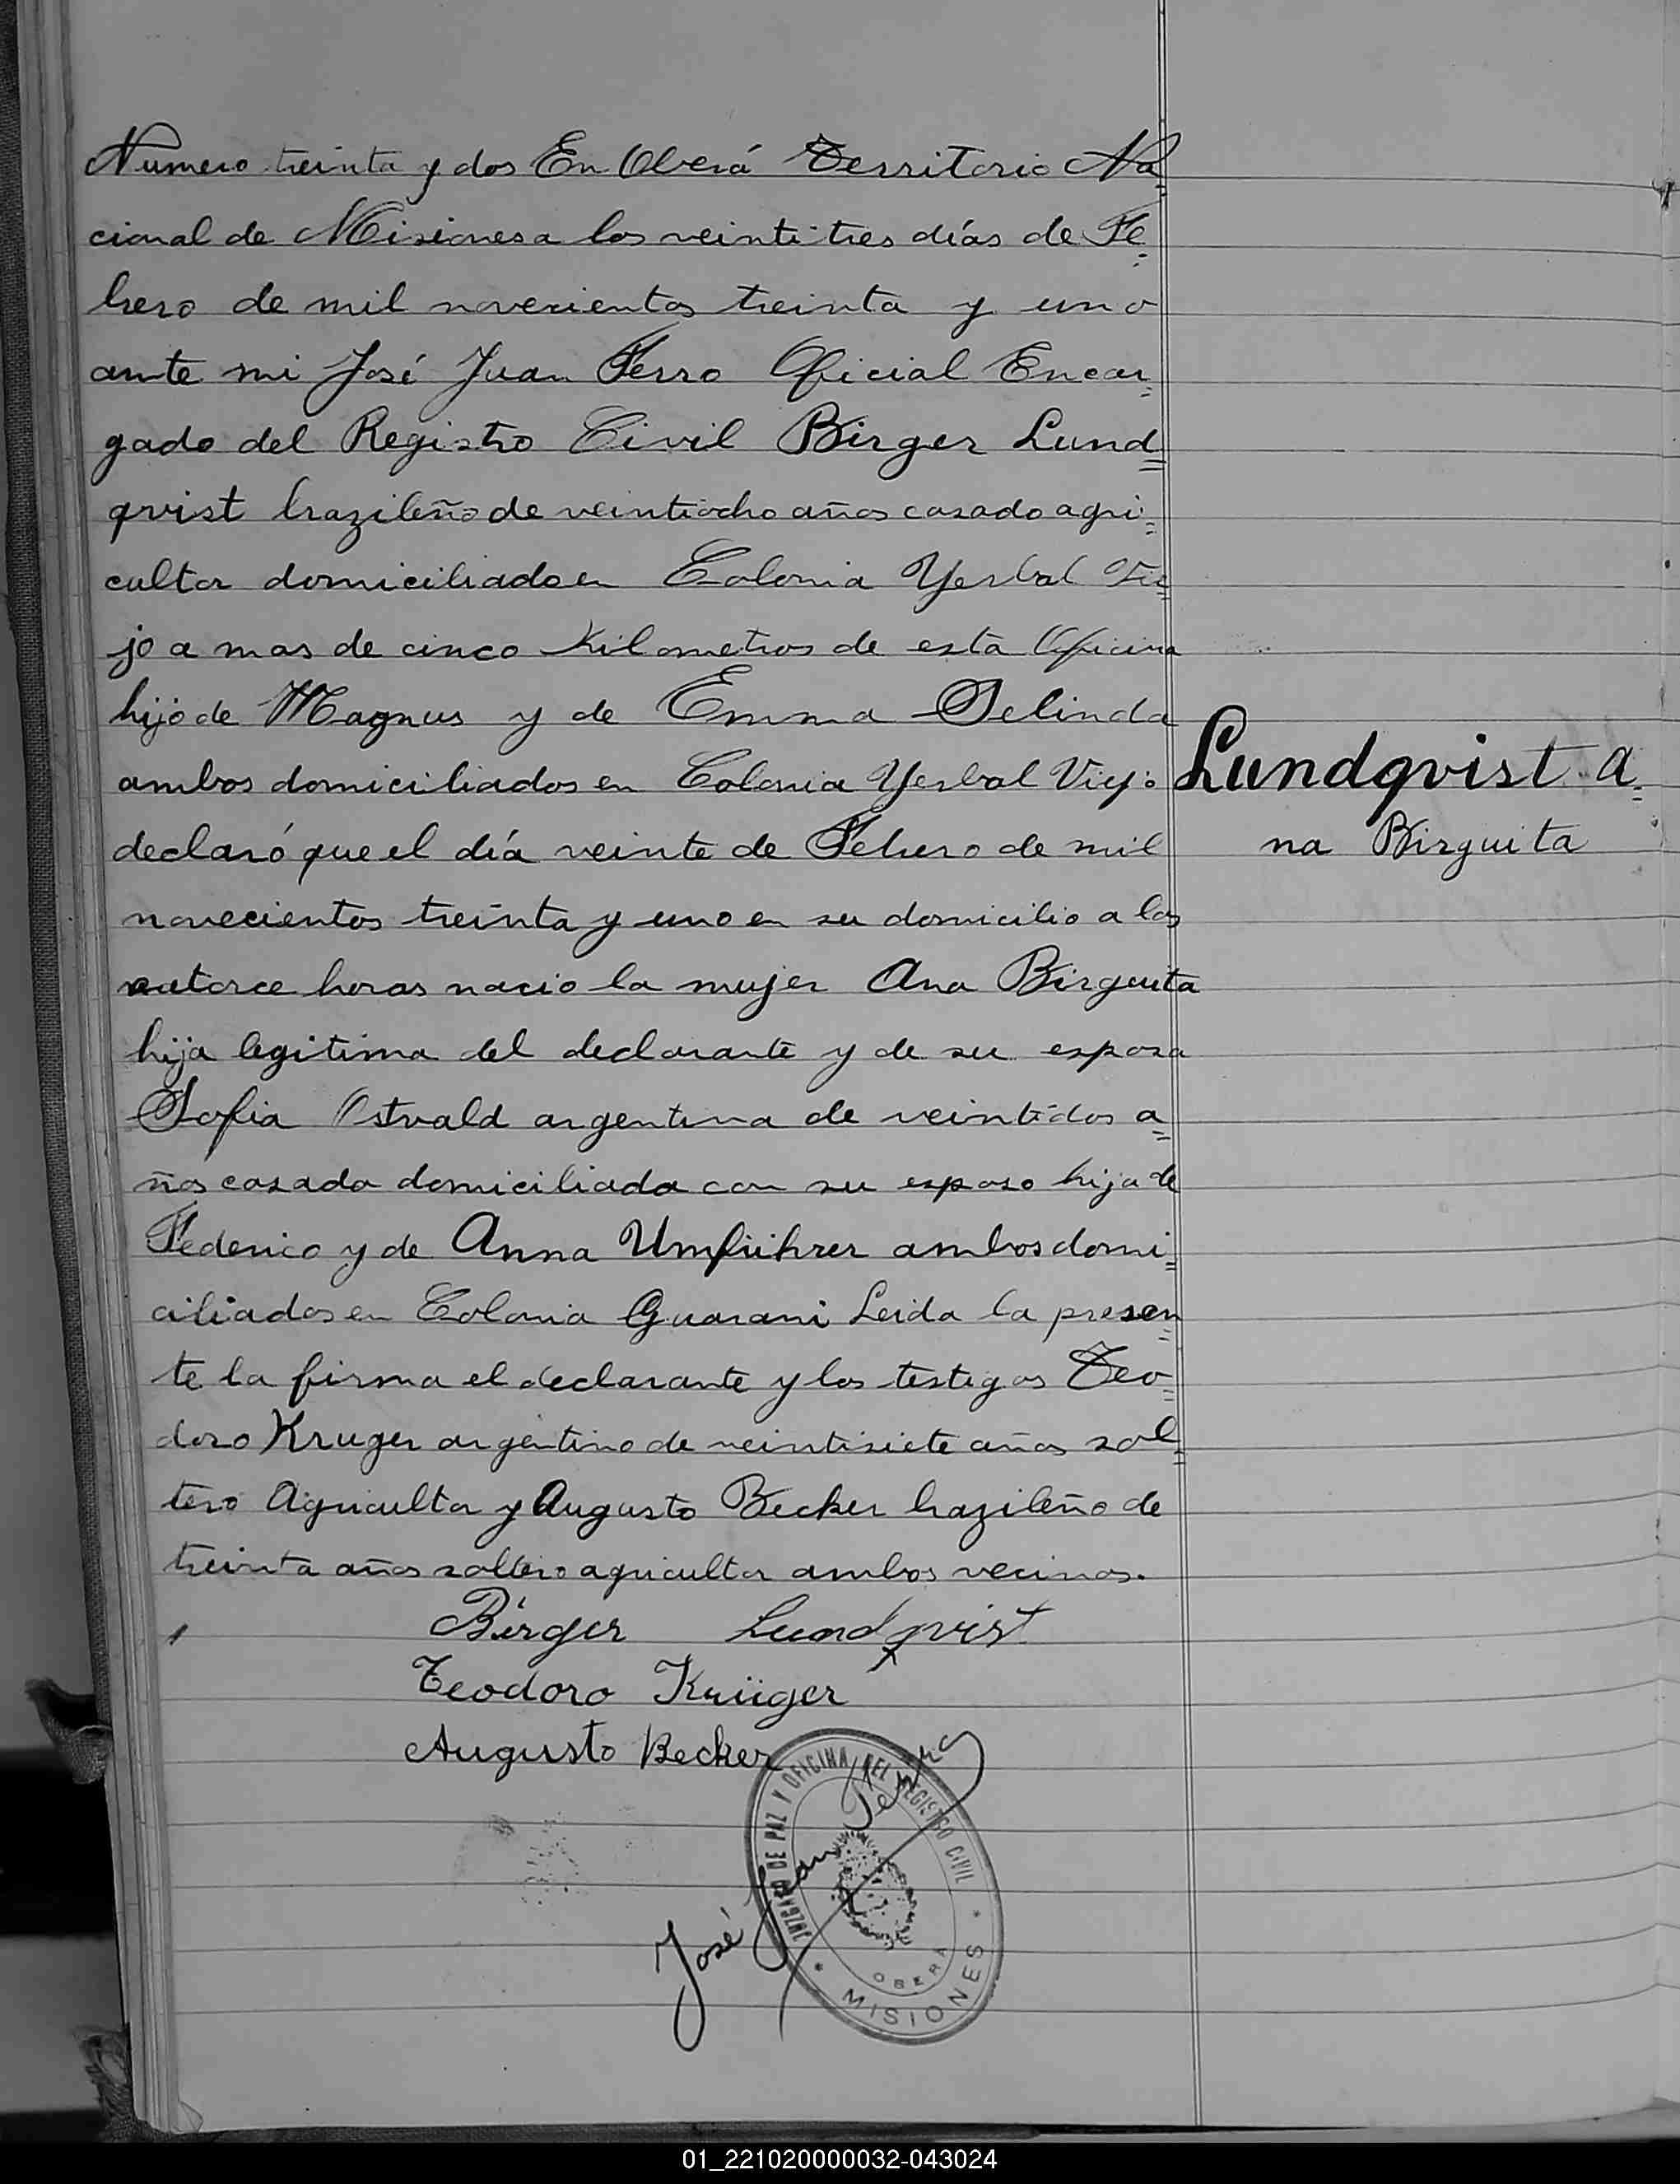 Numero treinta y dos En Oberá Territorio Na=
cional de Misiones a los veintitres días de Fe=
brero de mil novecientos treinta y uno
ante mi José Juan Ferro Oficial Encar=
gado del Registro Civil Birger Lund=
qvist brazileño de veintiocho años casado agri=
cultor domiciliado en Colonia Yerbal Vie=
jo a mas de cinco Kilometros de esta Oficina
hijo de Magnus y de Emma Selinda
ambos domiciliados en Colonia Yerbal Viejo
declaró que el día veinte de Febrero de mil
novecientos treinta y uno en su domicilio a las
catorce horas nacio la mujer Ana Birguita
hija legitima del declarante y de su esposa
Sofia Ostvald argentina de veintidos a=
ños casada domiciliada con su esposo hija de
Federico y de Anna Umführer ambos domi=
ciliados en Colonia Guarani Leida la presen=
te la firma el declarante y los testigos Teo=
doro Kruger argentino de veintisiete años sol=
tero Agricultor y Augusto Becker brazileño de
treinta años soltero agricultor ambos vecinos.
Birger Lundqvist
Teodoro Krüger
Augusto Becker
José Juan Ferro
JUZGADO DE PAZ Y OFICINA DEL REGISTRO CIVIL
* OBERA *
MISIONES
Lundqvist A=
na Birguita
01_221020000032-043024